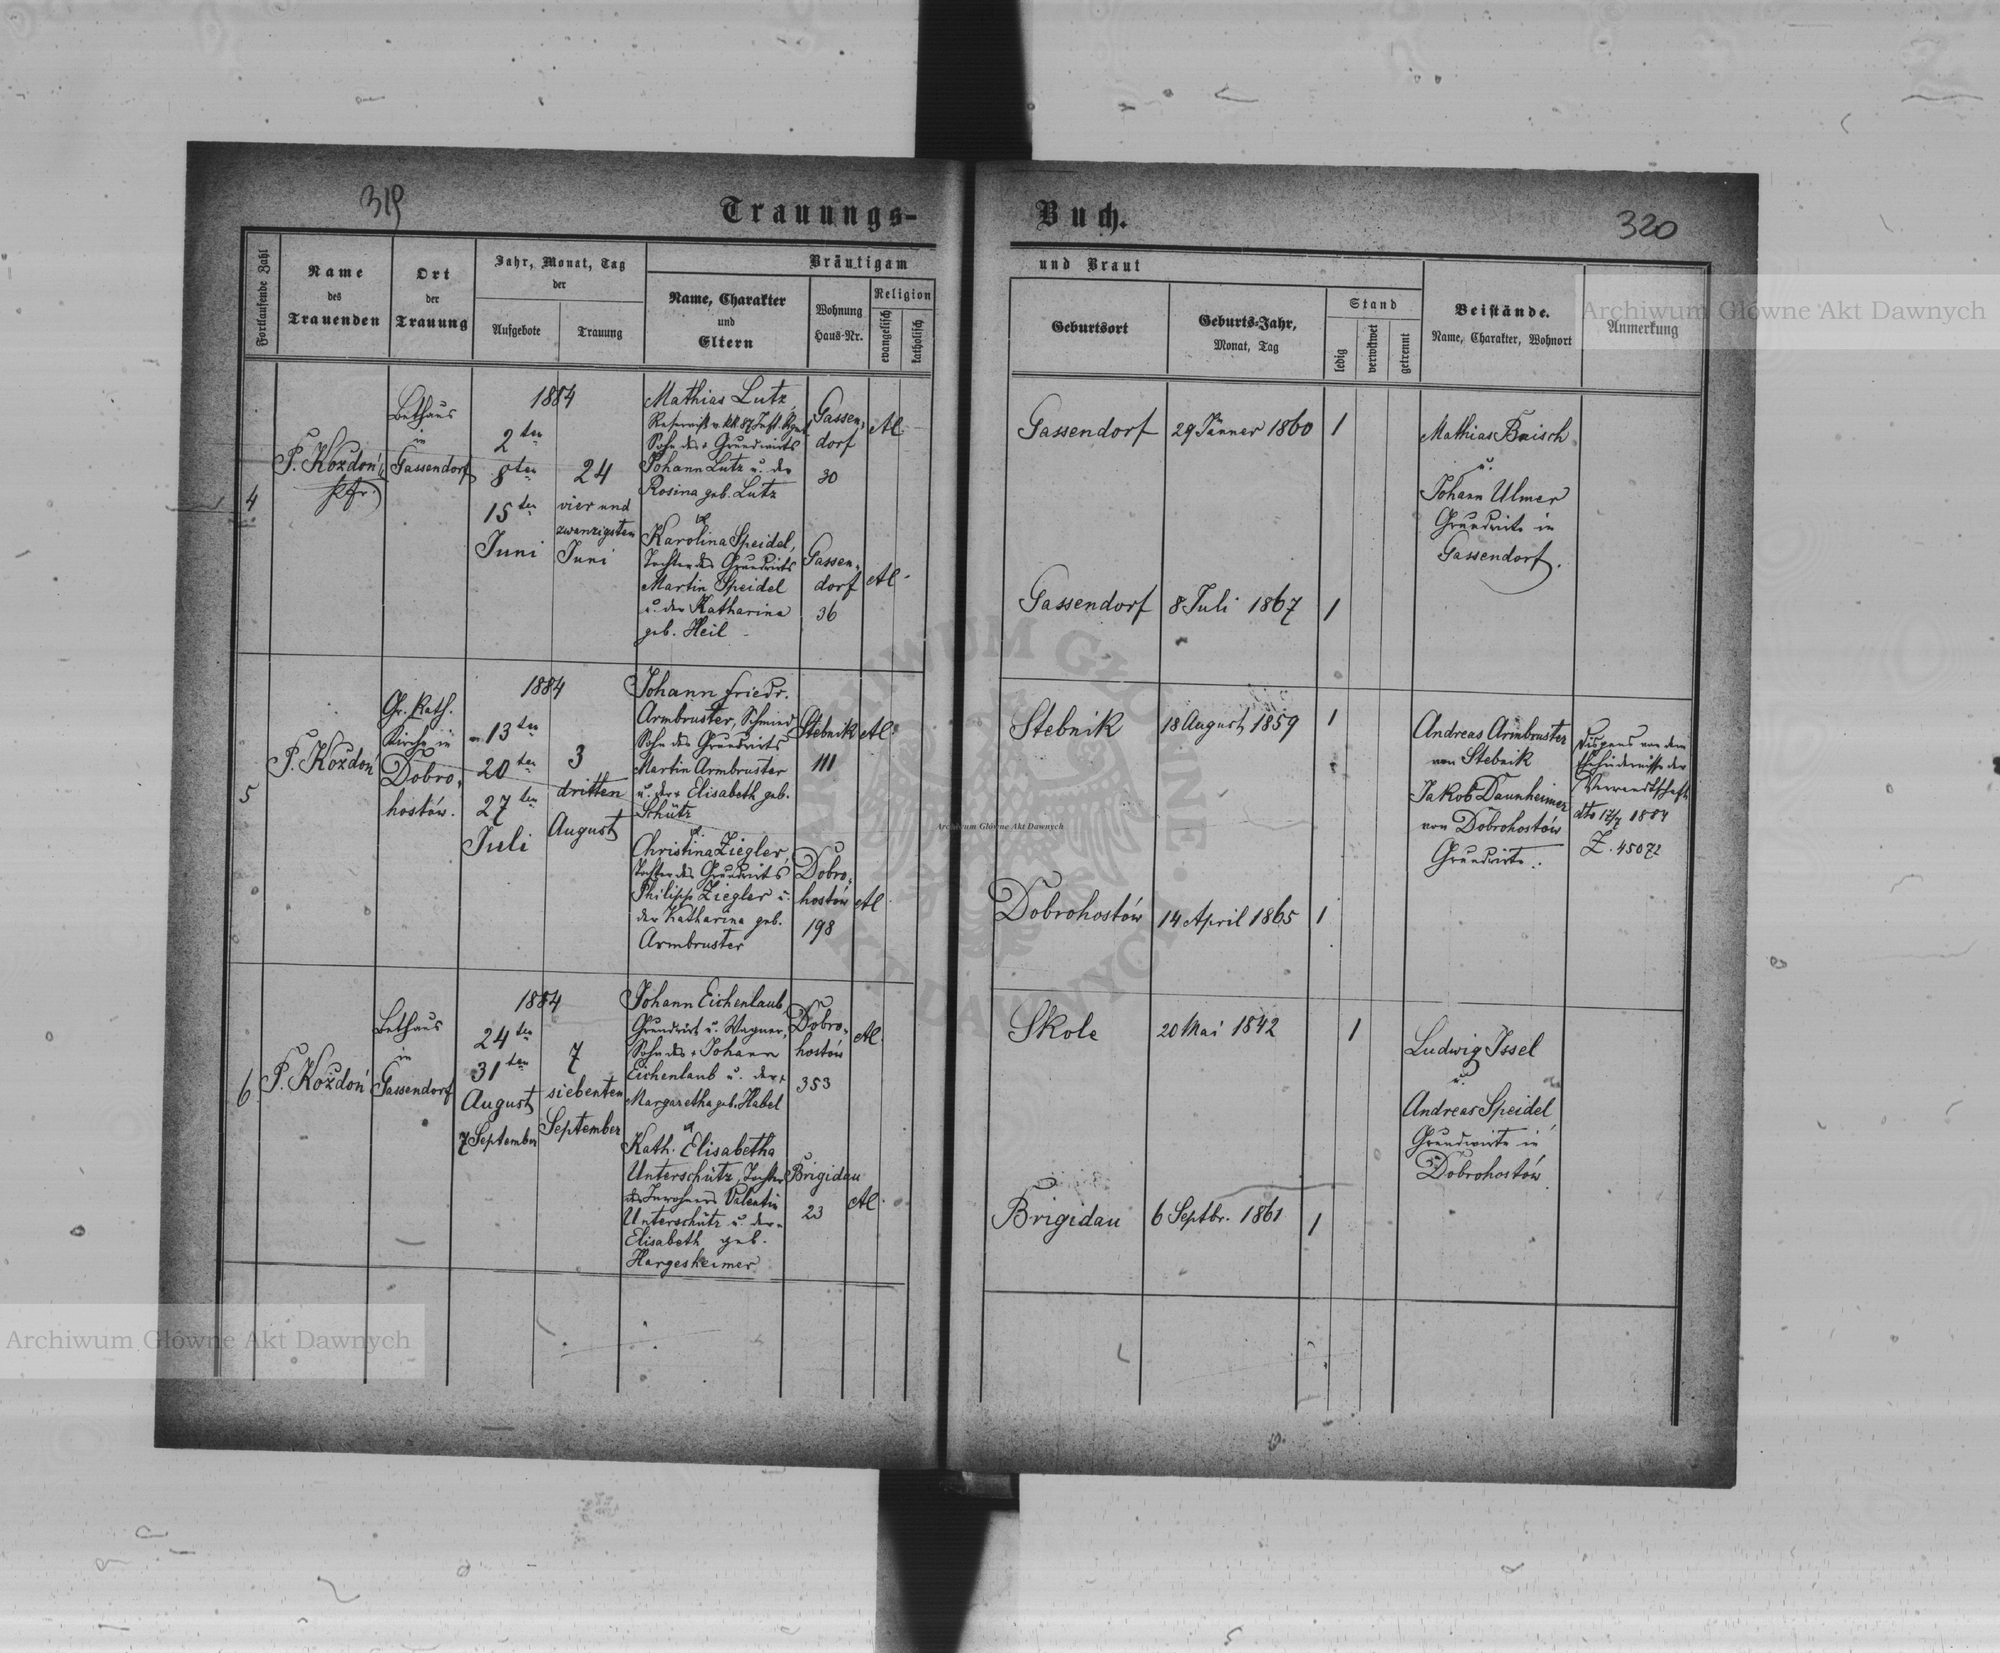 319
Trauungs-
Buch.
320
Fortlaufende Zahl
Name
des
Trauenden
Ort
der
Trauung
Jahr, Monat, Tag
der
Aufgebote
Trauung
Bräutigam
Name, Charakter
und
Eltern
Wohnung
Haus-Nr.
Religion
evangelisch
katholisch
und Braut
Geburtsort
Geburts-Jahr,
Monat, Tag
Stand
ledig
verwitwet
getrennt
Beistände.
Name, Charakter, Wohnort
Anmerkung
4
P. Kozdoń
Pfr.
Bethaus
in
Gassendorf
1884
2ten
8ten
15ten
Juni
24
vier und
zwanzigsten
Juni
Mathias Lutz,
Reservist
Sohn des + Grundwirts
Johann Lutz u. der
Rosina geb. Lutz
Gassen-
dorf
30
Al
Karolina Speidel,
Tochter des Grundwirts
Martin Speidel
u. der Katharina
geb. Heil
Gassen-
dorf
36
Al
Gassendorf
29 Jänner 1860
1
Gassendorf
8 Juli 1867
1
Mathias Baisch
u.
Johann Ulmer
Grundwirte in
Gassendorf.
5
P. Kozdoń
Gr. Kath.
Kirche in
Dobro-
hostów.
1884
13ten
20ten
27ten
Juli
3
dritten
August
Johann Friedr.
Armbruster, Schmied
Sohn des Grundwirts
Martin Armbruster
u. der + Elisabeth geb.
Schütz
Stebnik
111
Al
Christina Ziegler,
Tochter des Grundwirts
Philipp Ziegler u.
der Katharina geb.
Armbruster
Dobro-
hostów
198
Al
Stebnik
18 August 1859
1
Dobrohostów
14 April 1865
1
Andreas Armbruster
von Stebnik
Jakob Daunheimer
von Dobrohostów
Grundwirte.
Dispens von dem
Ehehindernisse der
Verwandtschaft
dto 17/7 1884
Z. 45072
6
P. Kozdoń
Bethaus
in
Gassendorf
1884
24ten
31ten
August
7 September
7
siebenten
September
Johann Eichenlaub
Grundwirt u. Wagner,
Sohn des + Johann
Eichenlaub u. der +
Margaretha geb. Habel
Dobro-
hostów
353
Al
Kath. Elisabetha
Unterschütz, Tochter
des Inwohners Valentin
Unterschütz u. der
Elisabeth geb.
Hargesheimer
Brigidau
23
Al
Skole
20 Mai 1842
1
Brigidau
6 Septbr. 1861
1
Ludwig Issel
u.
Andreas Speidel
Grundwirte in
Dobrohostów
Archiwum Główne Akt Dawnych
Archiwum Główne Akt Dawnych
Archiwum Główne Akt Dawnych
ARCHIWUM GŁÓWNE AKT DAWNYCH